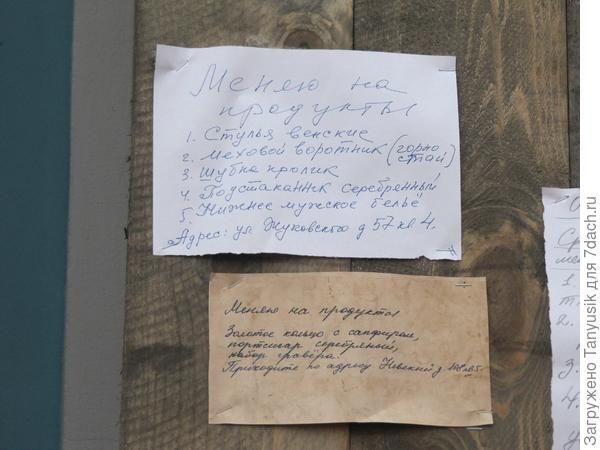 Меняю на
продукты
1. Стулья венские
2. Меховой воротник (горно
стай)
3. Шубка кролик
4. Подстаканник серебренный
5. Нижнее мужское бельё
Адрес: ул. Жуковского д 57 кв 4.
Меняю на продукты
Золотое кольцо с сапфиром,
портсигар серебряный,
набор гравёра.
Приходите по адресу Невский д.
1.
2.
3.
4.
Загружено Tanyusik для 7dach.ru